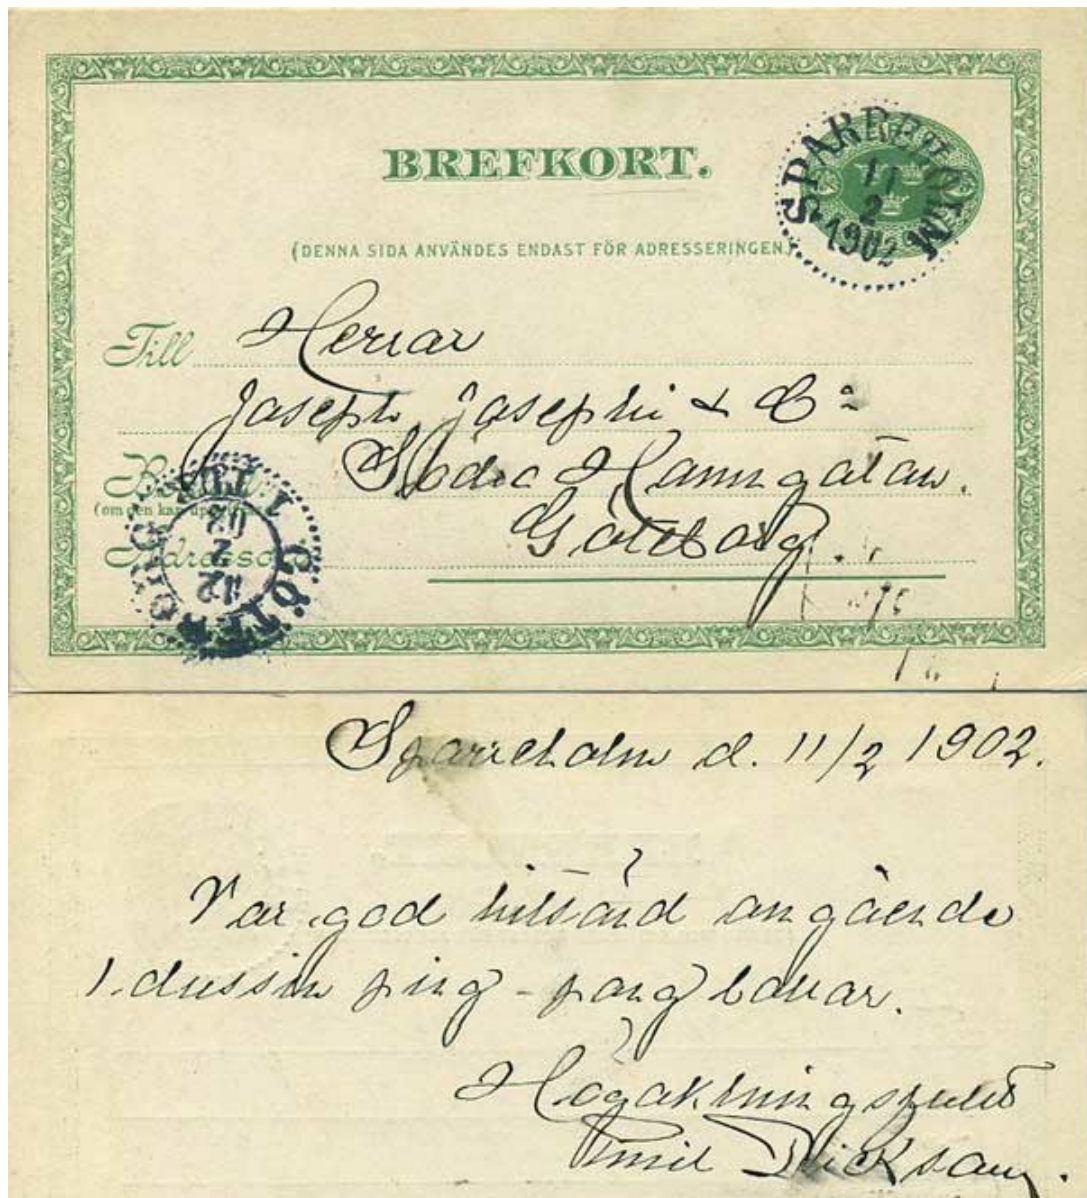 BREFKORT.
SPARREHOLM
11
2
1902
(DENNA SIDA ANVÄNDES ENDAST FÖR ADRESSERINGEN.)
Till Herrar
Joseph Josephi & Co
Södra Hamngatan.
Göteborg
Adressort
GÖTEBORG
12
2
02
Sparreholm d. 11/2 1902.
Var god angående
1. dussin ping-pong bollar.
Högaktningsfullt
Emil